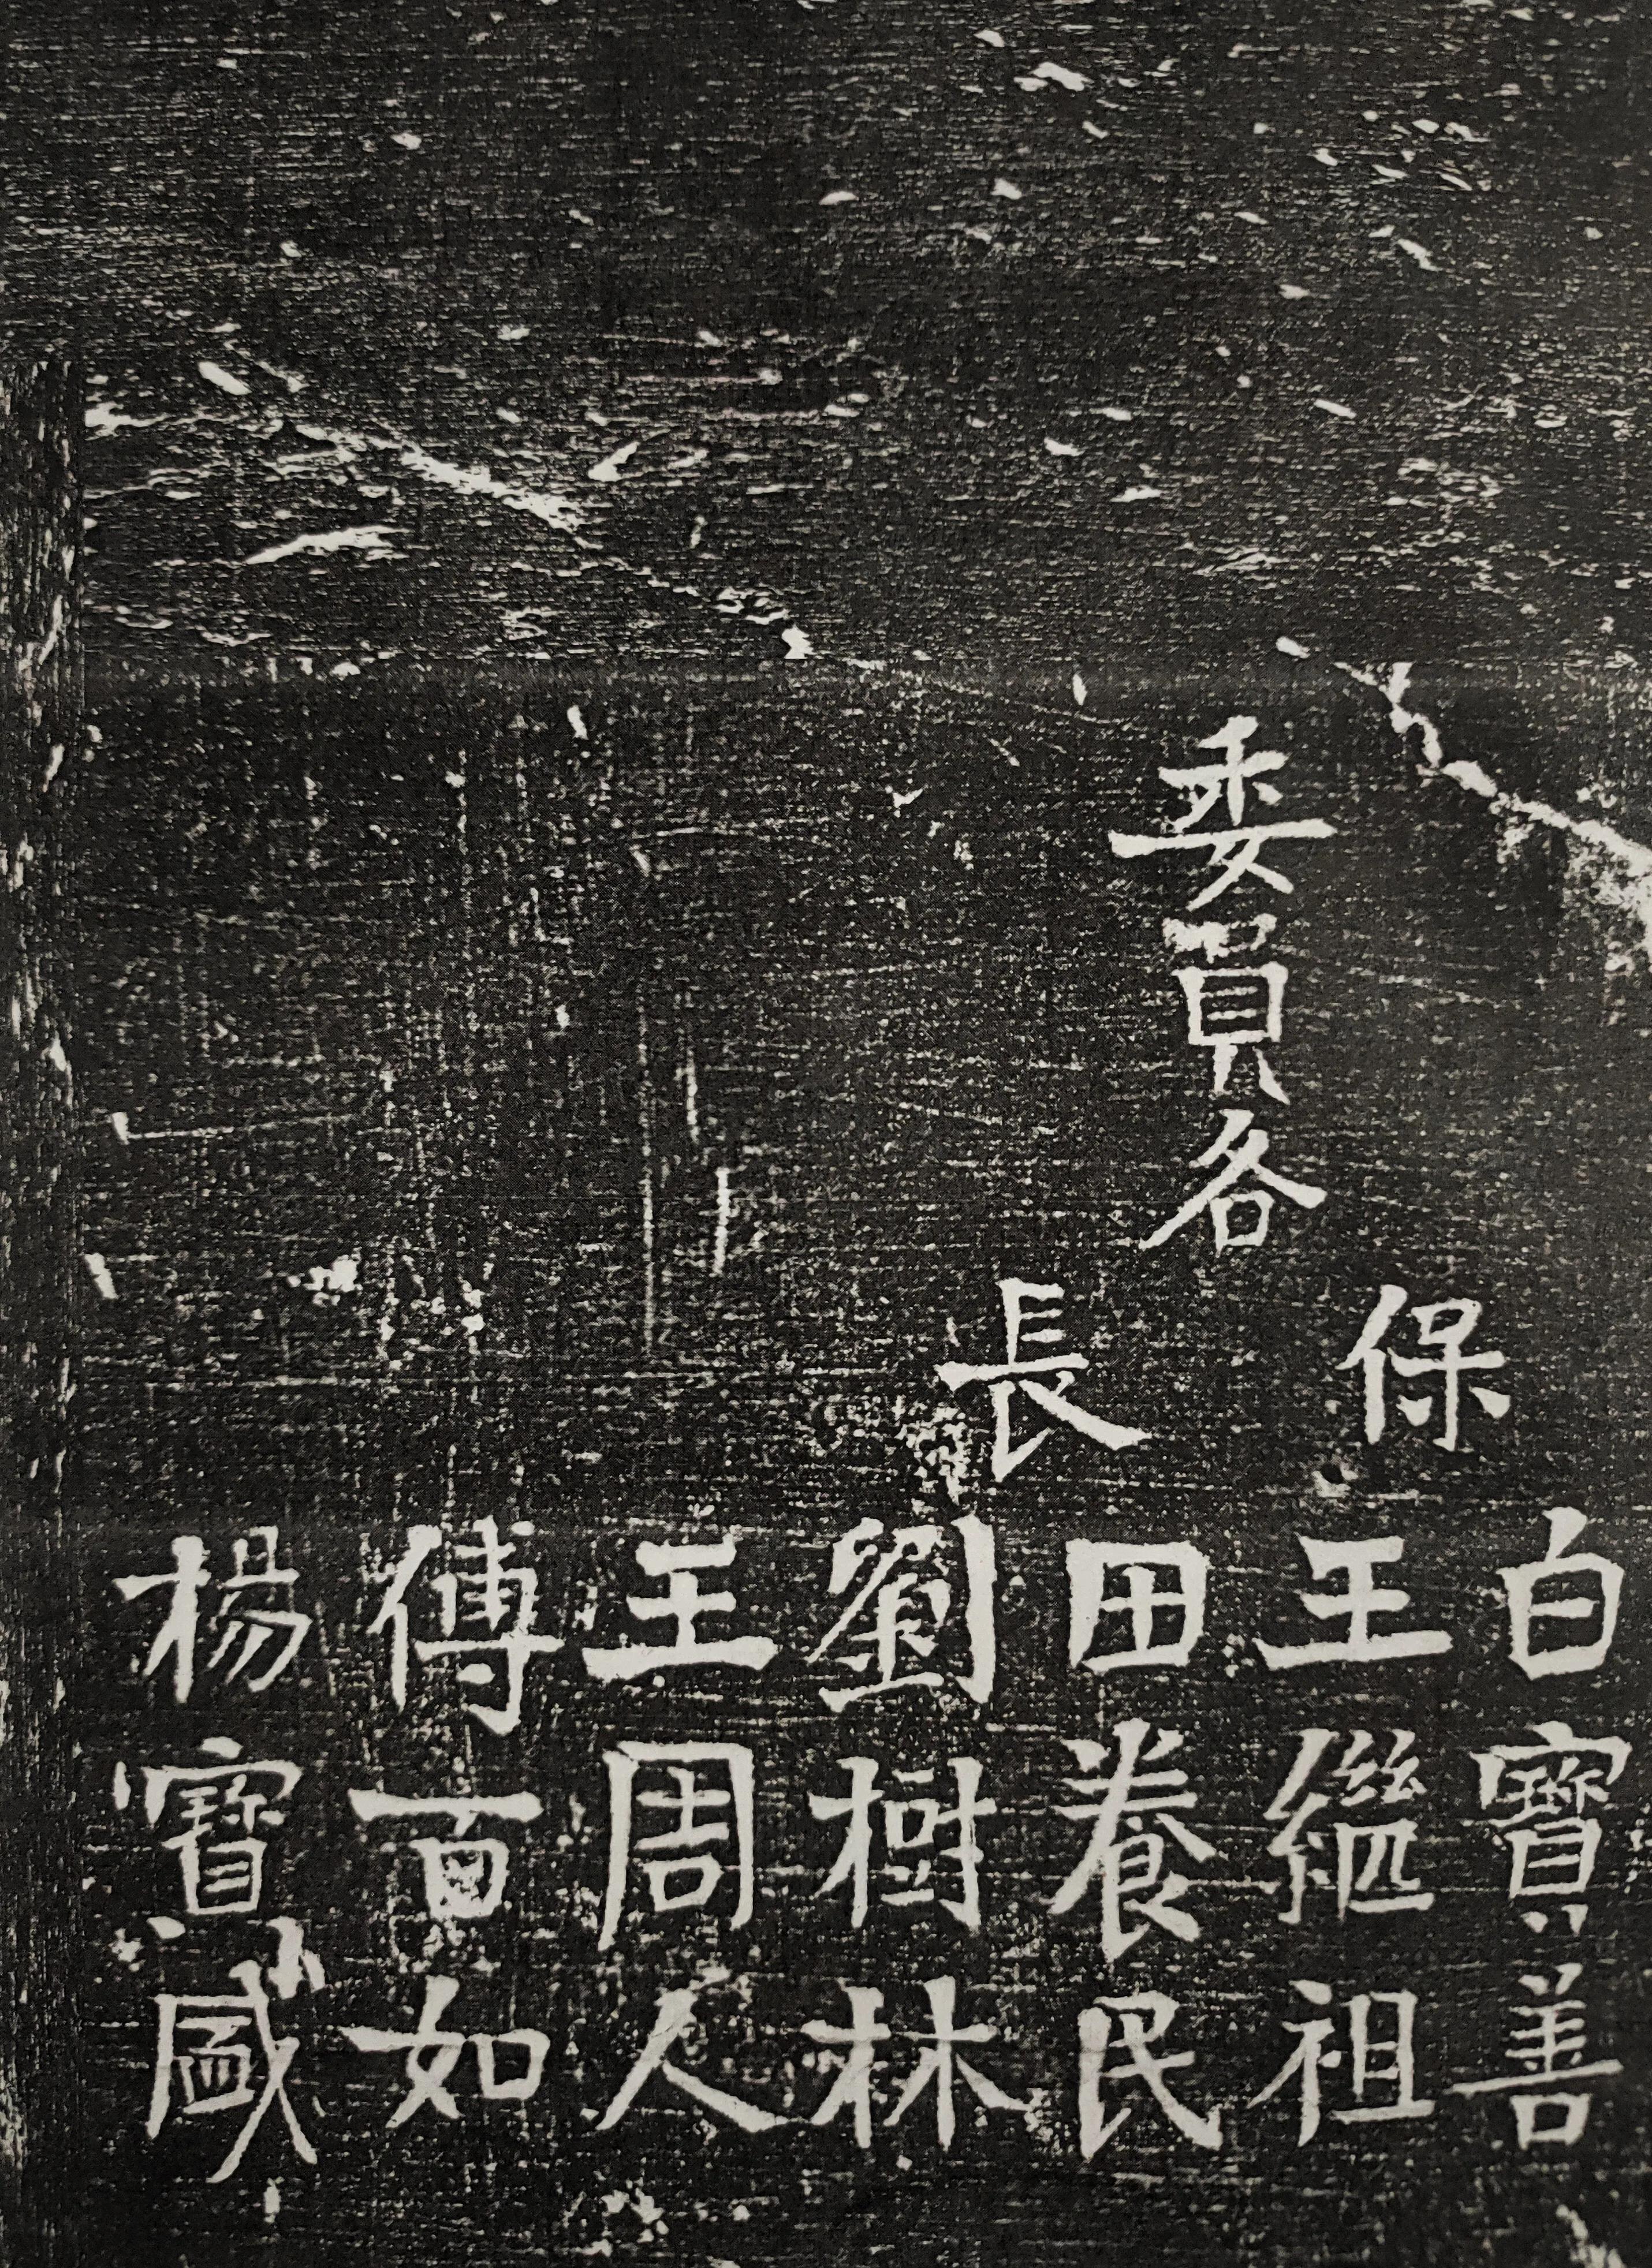 委員各
保長
白寶善
王繼祖
田養民
劉樹林
王周人
傅百如
楊寶